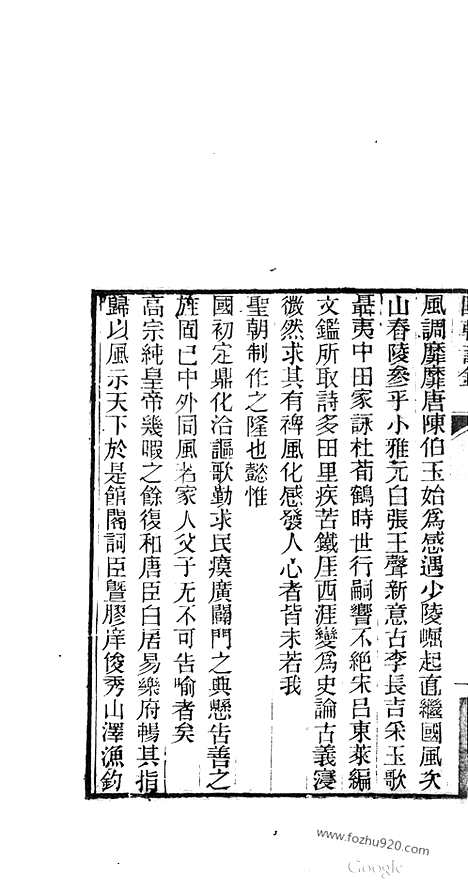 國朝詩鐸
風調靡靡唐陳伯玉始爲感遇少陵崛起直繼國風次
山舂陵參乎小雅元白張王聲新意古李長吉采玉歌
聶夷中田家詠杜荀鶴時世行嗣響不絕宋呂東萊編
文鑑所取詩多田里疾苦鐵厓西涯變爲史論古義寖
微然求其有裨風化感發人心者皆未若我
聖朝制作之隆也懿惟
國初定鼎化洽謳歌勤求民瘼廣闢門之典懸告善之
旌固已中外同風若家人父子无不可告喻者矣
高宗純皇帝幾暇之餘復和唐臣白居易樂府暢其指
歸以風示天下於是館閣詞臣曁膠庠俊秀山澤漁釣
www.fozhu920.com
Google